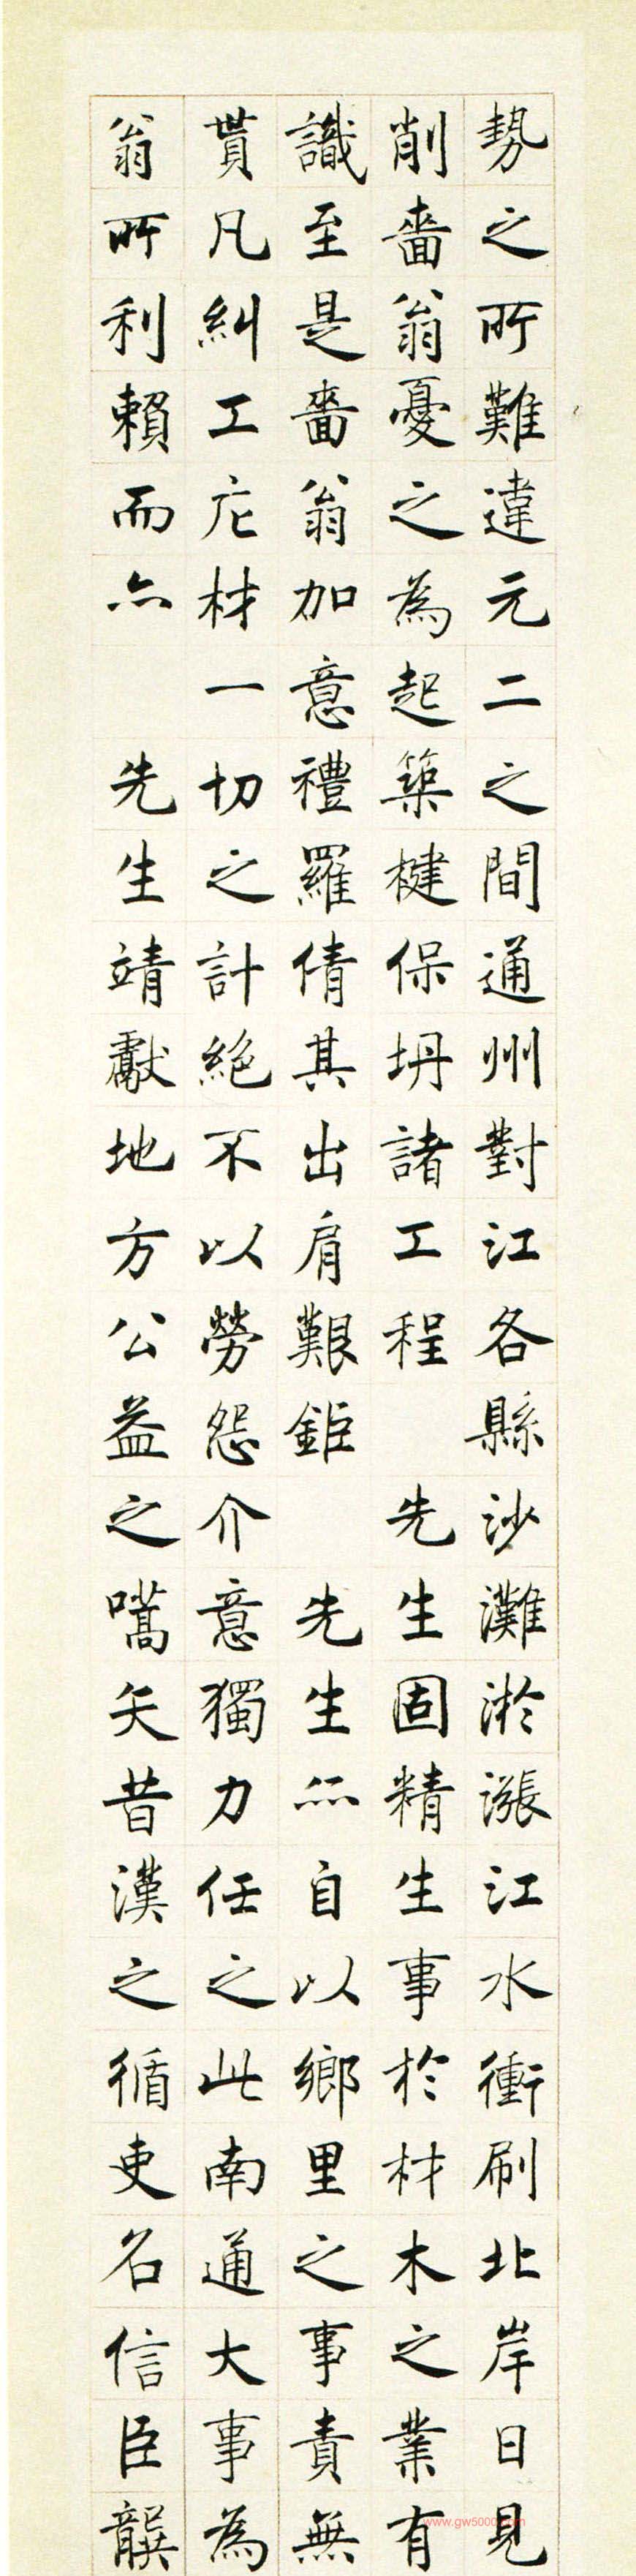 勢之所難違元二之間通州對江各縣沙灘淤漲江水衝刷北岸日見
削嗇翁憂之為起築楗保坍諸工程　先生固精生事於材木之業有
識至是嗇翁加意禮羅倩其出肩艱鉅　先生亦自以鄉里之事責無
貰凡糾工庀材一切之計絕不以勞怨介意獨力任之此南通大事為
翁所利賴而亦　先生靖獻地方公益之嚆矢昔漢之循吏名信臣龔
www.gw500.com